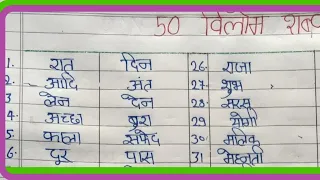 50 विलोम शब्द
1. रात दिन 26. राजा
2. आदि अंत 27. शुभ
3. लेन देन 28. सरस
4. अच्छा बुरा 29 योगी
5. काला सफेद 30.
6. दूर पास 31 मेहनती